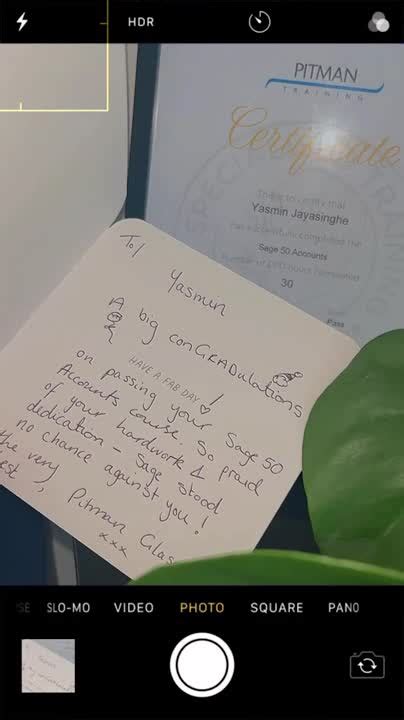 HDR
PITMAN
TRAINING
Certificate
This is to certify that
Yasmin Jayasinghe
has successfully completed the
Sage 50 Accounts
Number of CPD hours completed
30
Pass
To/
Yasmin
A big conGRADulations
HAVE A FAB DAY!
on passing your Sage 50
Accounts course. So proud
of your hardwork &
dedication - Sage stood
no chance against you!
the very
, Pitman
xxx
SLO-MO
VIDEO
PHOTO
SQUARE
PANO